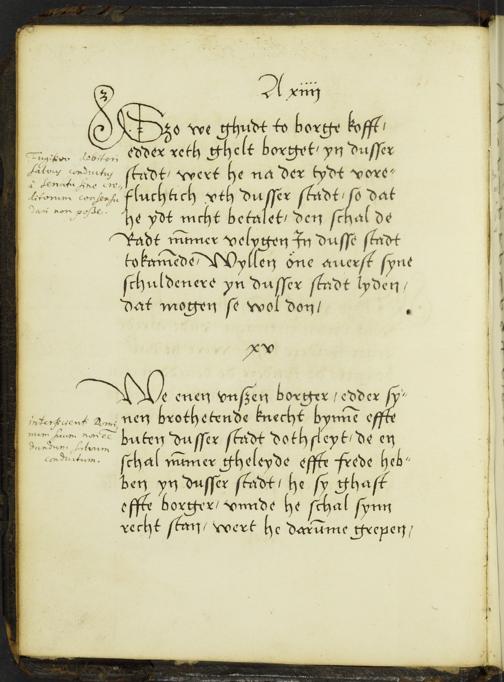 A xiiii
Szo we ghudt to borge kofft,
edder reth ghelt borget, yn dusser
stadt, wert he na der tydt vore=
fluchtich vth dusser stadt, so dat
he ydt nicht betalet, den schal de
Radt nūmer velygen In dusse stadt
tokamēde, Wyllen öne auerst syne
schuldenere yn dusser stadt lyden,
dat mogen se wol don,
Fugitivo debitori
salvus conductus
a senatu sine cre=
ditorum consensu
dari non posse.
xv
We enen vnszen borger, edder sy=
nen brothetende knecht bynnē effte
buten dusser stadt dothsleyt, de en
schal nūmer gheleyde effte frede heb=
ben yn dusser stadt, he sy ghast
effte borger, vnnde he schal synn
recht stan, wert he darūme grepen,
suum non
dandum salvum
conductum.